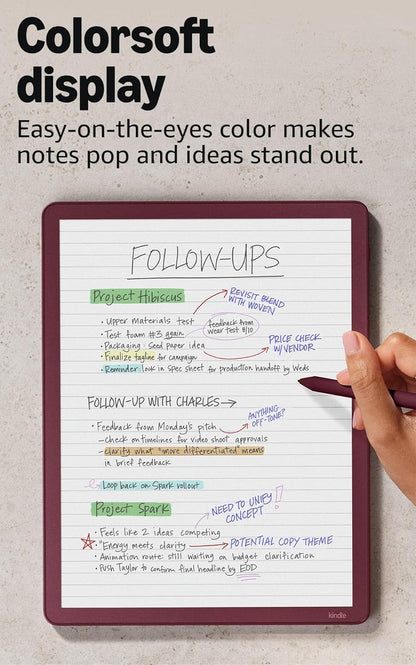 Colorsoft
display
Easy-on-the-eyes color makes
notes pop and ideas stand out.
FOLLOW-UPS
Project Hibiscus
REVISIT BLEND
WITH WOVEN
• Upper materials test
• Test foam #3 again
feedback from
wear test 8/10
• Packaging: Seed paper idea
PRICE CHECK
W/VENDOR
• Finalize tagline for campaign
• Reminder: lock in spec sheet for production handoff by Weds
FOLLOW-UP WITH CHARLES →
ANYTHING
OFF-TONE?
• Feedback from Monday's pitch
– check on timelines for video shoot approvals
– clarify what "more differentiated" means
in brief feedback
Loop back on Spark rollout
Project Spark
NEED TO UNIFY
CONCEPT!!
• Feels like 2 ideas competing
• "Energy meets clarity → POTENTIAL COPY THEME
• Animation route: still waiting on budget clarification
• Push Taylor to confirm final headline by EOD
kindle